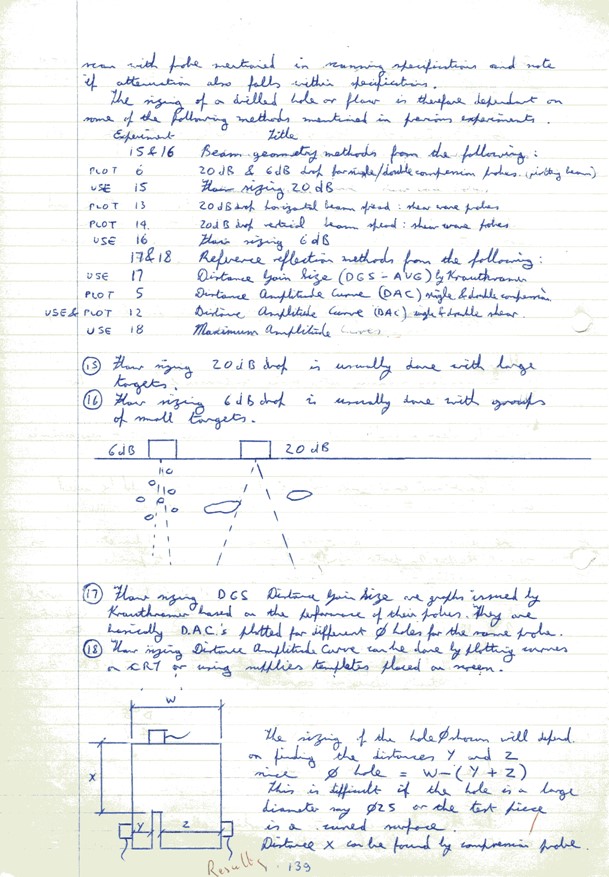 scan with probe mentioned in scanning specifications and note
if attenuation also falls within specifications.
The sizing of a drilled hole or flaw is therefore dependant on
some of the following methods mentioned in previous experiments.
Experiment Title
15 & 16 Beam geometry methods from the following:
PLOT 6 20 dB & 6dB drop for single/double compression probes. (plotting beam)
USE 15 Flaw sizing 20 dB
PLOT 13 20 dB drop horizontal beam spread : shear wave probes
PLOT 14. 20dB drop vertical beam spread : shear wave probes
USE 16 Flaw sizing 6 dB
17 & 18 Reference reflection methods from the following:
USE 17 Distance Gain Size (DGS - AVG) by Krautkramer
PLOT 5 Distance Amplitude Curve (DAC) single & double compression
USE & PLOT 12 Distance Amplitude Curve (DAC) single & double shear.
USE 18 Maximum Amplitude Curves
15 Flaw sizing 20 dB drop is usually done with large
targets.
16 Flaw sizing 6 dB drop is usually done with groups
of small targets.
6dB 20 dB
17 Flaw sizing DGS Distance Gain Size are graphs issued by
Krautkramer based on the performance of their probes. They are
basically D.A.C.'s plotted for different Ø holes for the same probe.
18 Flaw sizing Distance Amplitude Curve can be done by plotting curves
on CRT or using supplies templates placed on screen.
W
X
Y Z
The sizing if the hole Ø shown will depend
on finding the distances Y and Z
since Ø hole = W-(Y+Z)
This is difficult if the hole is a large
diameter say Ø25 or the test piece
is a curved surface.
Distance X can be found by compression probe.
Results. 139